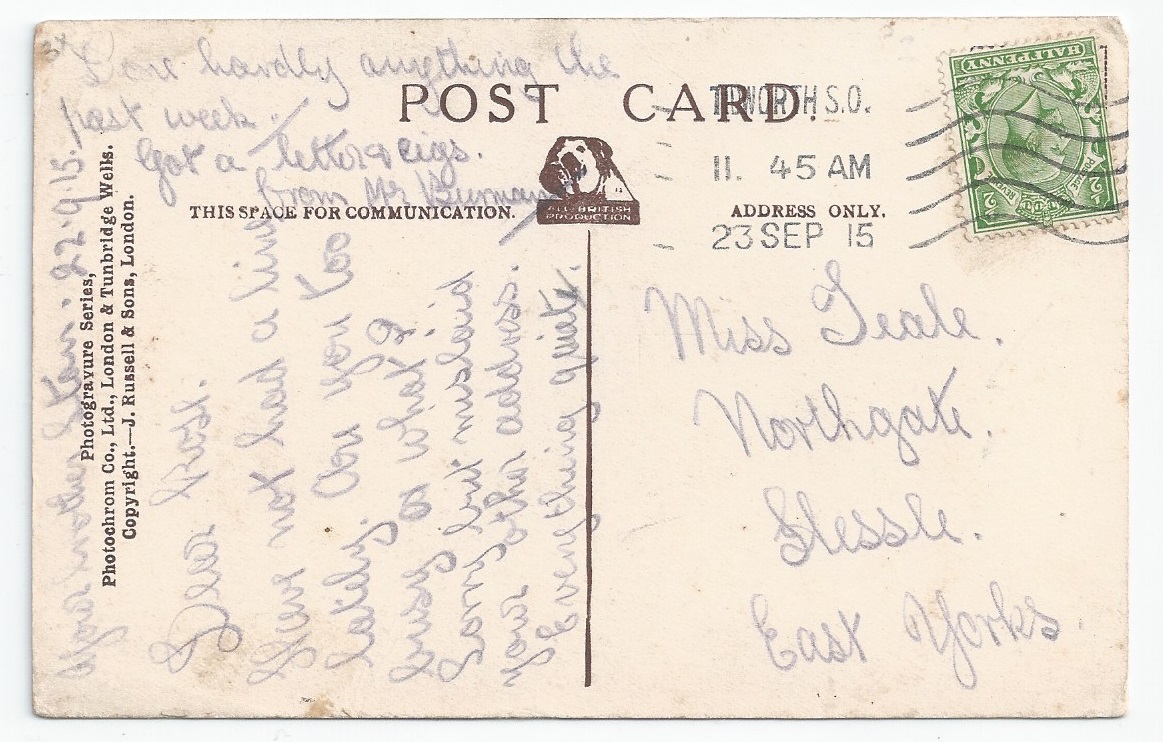 Done hardly anything the
past week.
Got a letter & cigs.
from Mr Burman
POST CARD.
THIS SPACE FOR COMMUNICATION.
ALL BRITISH
PRODUCTION
ADDRESS ONLY.
TIDWORTH S.O.
11. 45 AM
23 SEP 15
HALFPENNY
POSTAGE
REVENUE
Photogravure Series,
Photochrom Co., Ltd., London & Tunbridge Wells.
Copyright.—J. Russell & Sons, London.
Dear
Have not had a line
lately. Are you too
busy or what?
Sorry but mislaid
your other address.
Everything quiet.
Your brother Stan. 22.9.15.
Miss Teale.
Northgate.
Hessle.
East Yorks